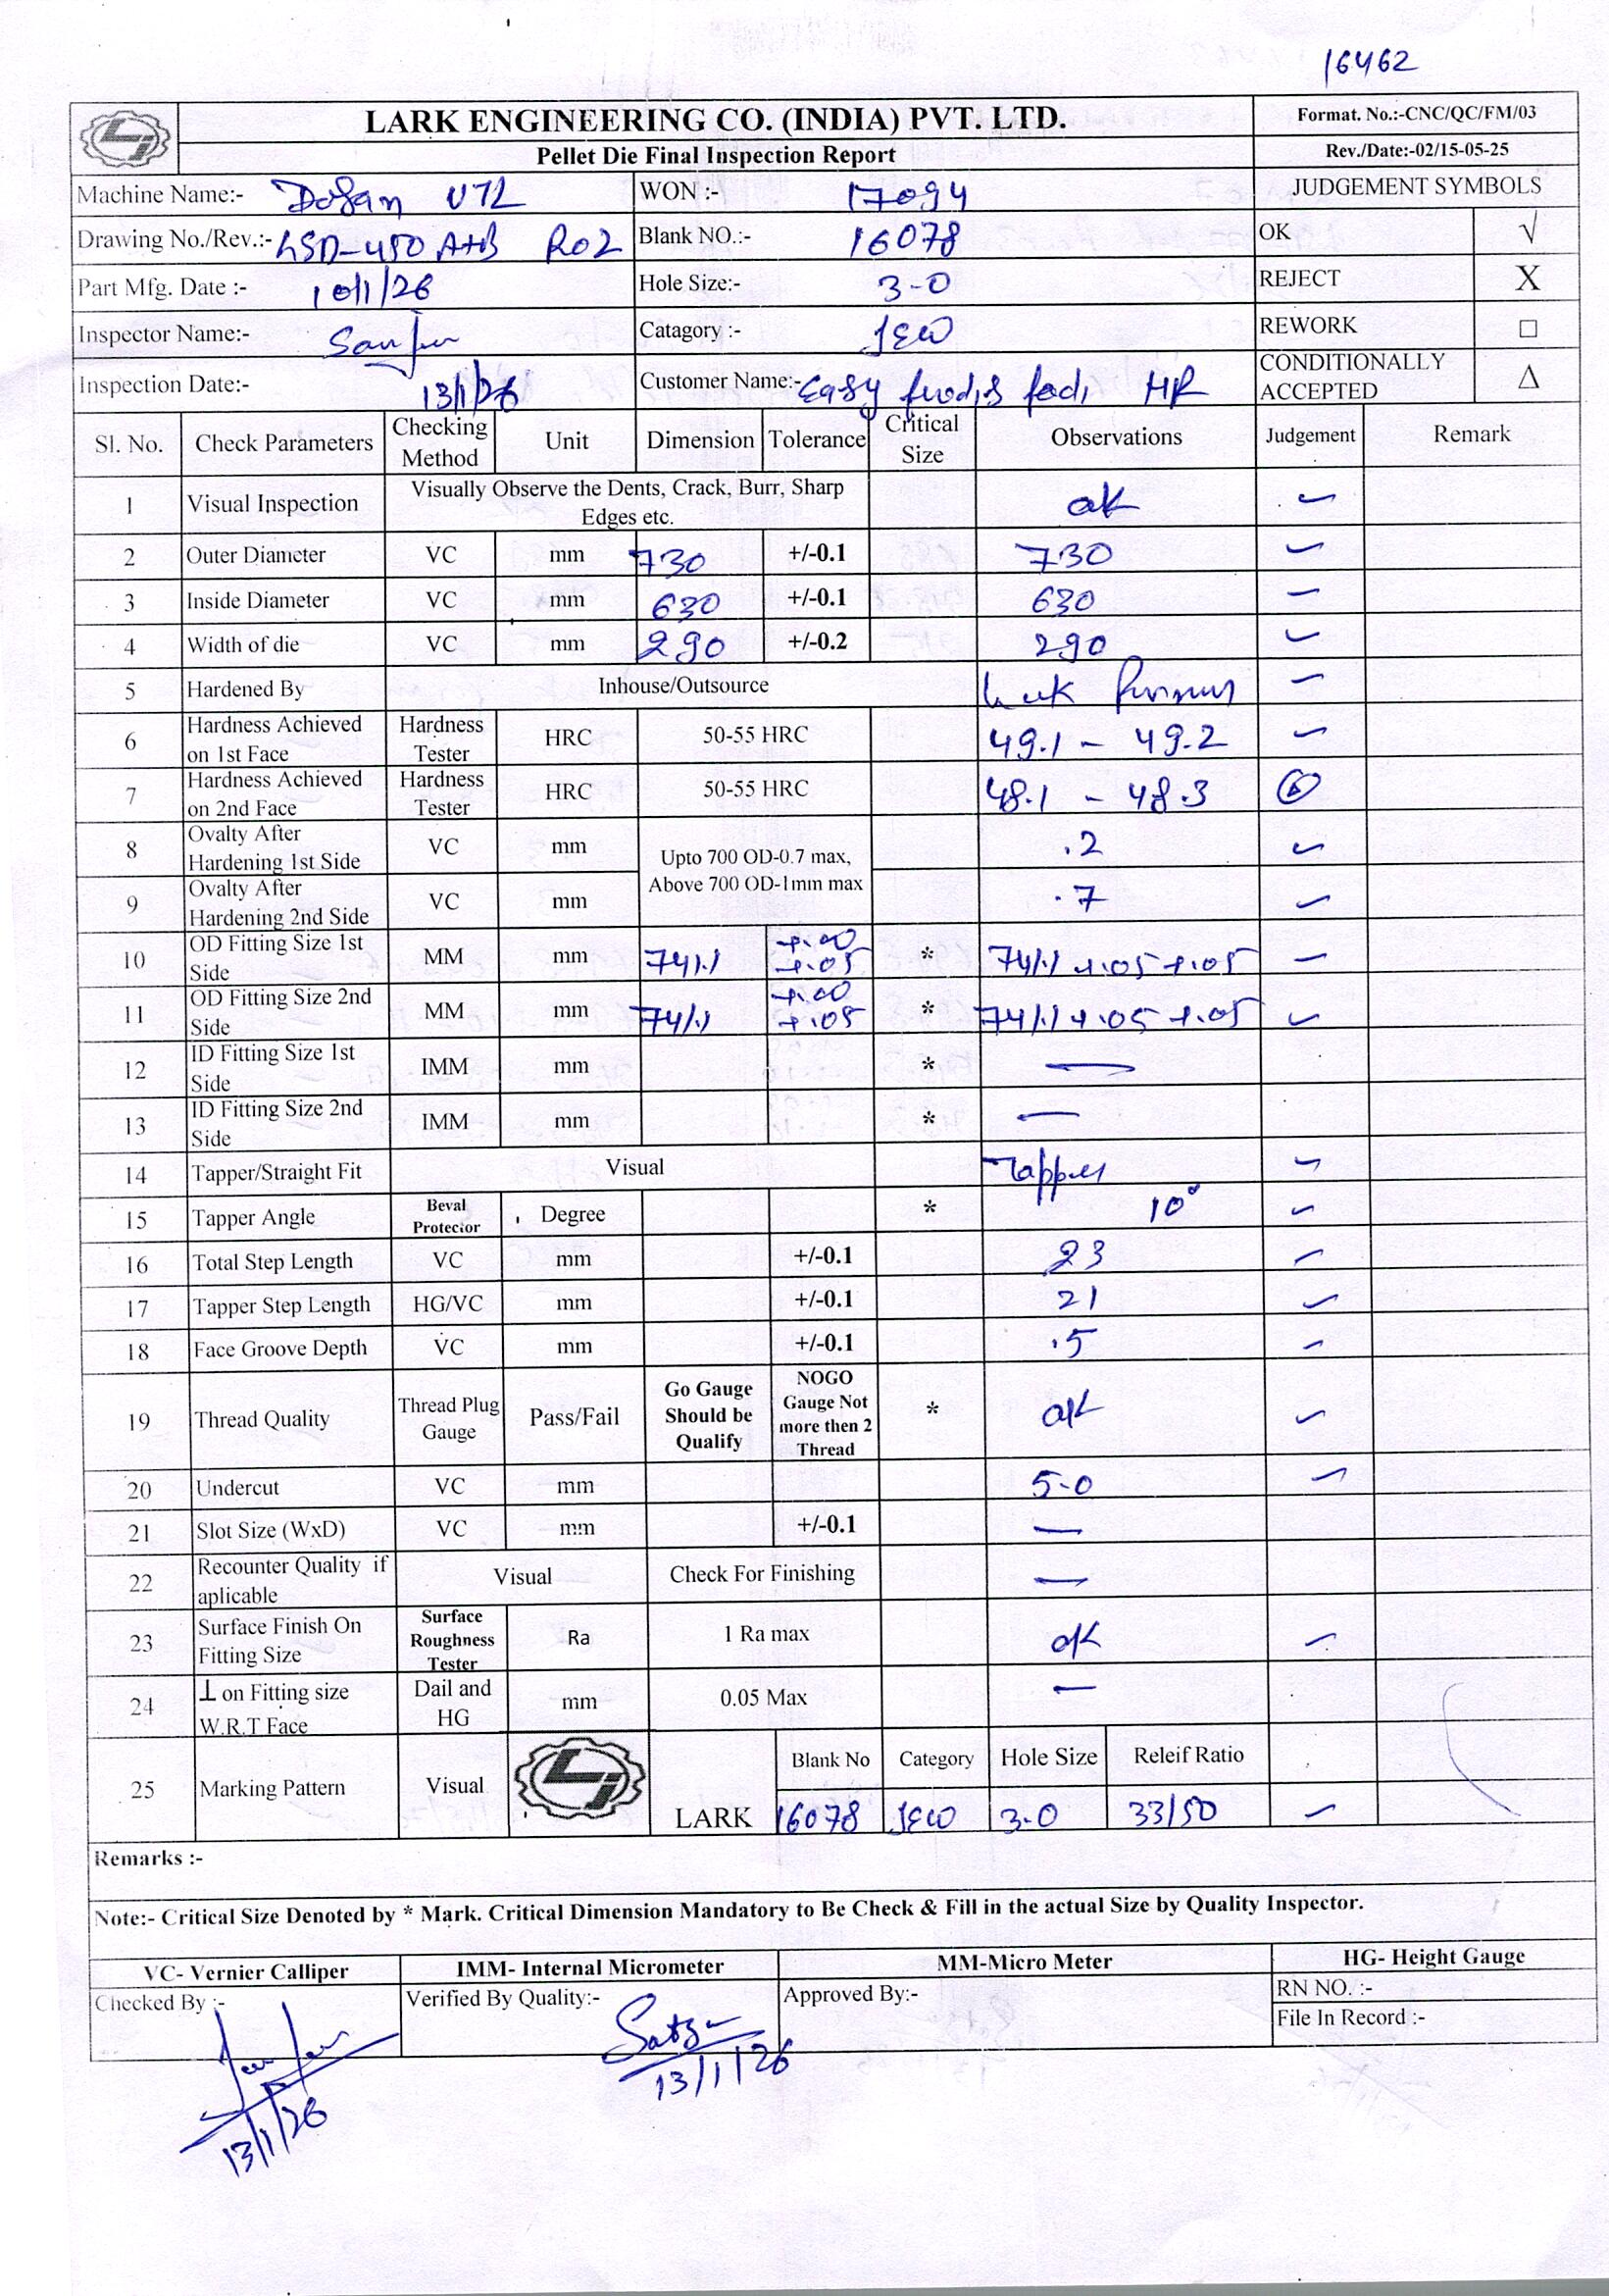 16462
LARK ENGINEERING CO. (INDIA) PVT. LTD.
Format. No.:-CNC/QC/FM/03
Pellet Die Final Inspection Report
Rev./Date:-02/15-05-25
Machine Name:- Dosan VTL WON :- 17094 JUDGEMENT SYMBOLS
Drawing No./Rev.:- LSD-450 A+B R02 Blank NO.:- 16078 OK √
Part Mfg. Date :- 10/1/26 Hole Size:- 3-0 REJECT X
Inspector Name:- Catagory :- JEW REWORK □
Inspection Date:- 13/1/26 Customer Name:- Easy HR CONDITIONALLY ACCEPTED Δ
Sl. No. Check Parameters Checking Method Unit Dimension Tolerance Critical Size Observations Judgement Remark
1 Visual Inspection Visually Observe the Dents, Crack, Burr, Sharp Edges etc. ok
2 Outer Diameter VC mm 730 +/-0.1 730
3 Inside Diameter VC mm 630 +/-0.1 630
4 Width of die VC mm 290 +/-0.2 290
5 Hardened By Inhouse/Outsource
6 Hardness Achieved on 1st Face Hardness Tester HRC 50-55 HRC 49.1 - 49.2
7 Hardness Achieved on 2nd Face Hardness Tester HRC 50-55 HRC 48.1 - 48.3
8 Ovalty After Hardening 1st Side VC mm Upto 700 OD-0.7 max, Above 700 OD-1mm max .2
9 Ovalty After Hardening 2nd Side VC mm .7
10 OD Fitting Size 1st Side MM mm 741.1 +.00 +.05 * 741.1 +.05 +.05
11 OD Fitting Size 2nd Side MM mm 741.1 +.00 +.05 * 741.1 +.05 +.05
12 ID Fitting Size 1st Side IMM mm * —
13 ID Fitting Size 2nd Side IMM mm * —
14 Tapper/Straight Fit Visual Tapper
15 Tapper Angle Beval Protector Degree * 10°
16 Total Step Length VC mm +/-0.1 23
17 Tapper Step Length HG/VC mm +/-0.1 21
18 Face Groove Depth VC mm +/-0.1 .5
19 Thread Quality Thread Plug Gauge Pass/Fail Go Gauge Should be Qualify NOGO Gauge Not more then 2 Thread * ok
20 Undercut VC mm 5-0
21 Slot Size (WxD) VC mm +/-0.1 —
22 Recounter Quality if aplicable Visual Check For Finishing —
23 Surface Finish On Fitting Size Surface Roughness Tester Ra 1 Ra max ok
24 ⊥ on Fitting size W.R.T Face Dail and HG mm 0.05 Max —
25 Marking Pattern Visual LARK Blank No Category Hole Size Releif Ratio
16078 JEW 3-0 33/50
Remarks :-
Note:- Critical Size Denoted by * Mark. Critical Dimension Mandatory to Be Check & Fill in the actual Size by Quality Inspector.
VC- Vernier Calliper IMM- Internal Micrometer MM-Micro Meter HG- Height Gauge
Checked By :- Verified By Quality:- Approved By:- RN NO. :-
File In Record :-
13/1/26
13/1/26